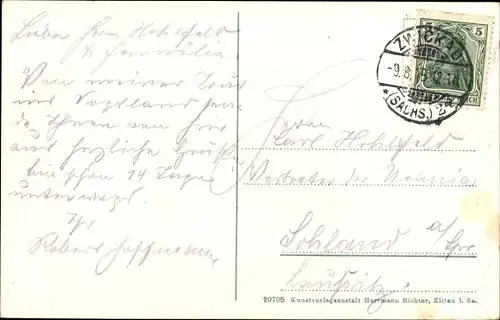 Lieber Herr Hohlfeld
& Familie
Von meiner Tour
ins Vogtland sen-
de Ihnen von hier
aus herzliche Grüße
bin schon 14 Tage
unterwegs.
Ihr
Robert Hoffmann
5
ZWICKAU
(SACHS.)
Herrn
Carl Hohlfeld
Vertreter der Urania
Sohland a/Spr
Lausitz
20705 Kunstverlagsanstalt Herrmann Richter, Zittau i. Sa.